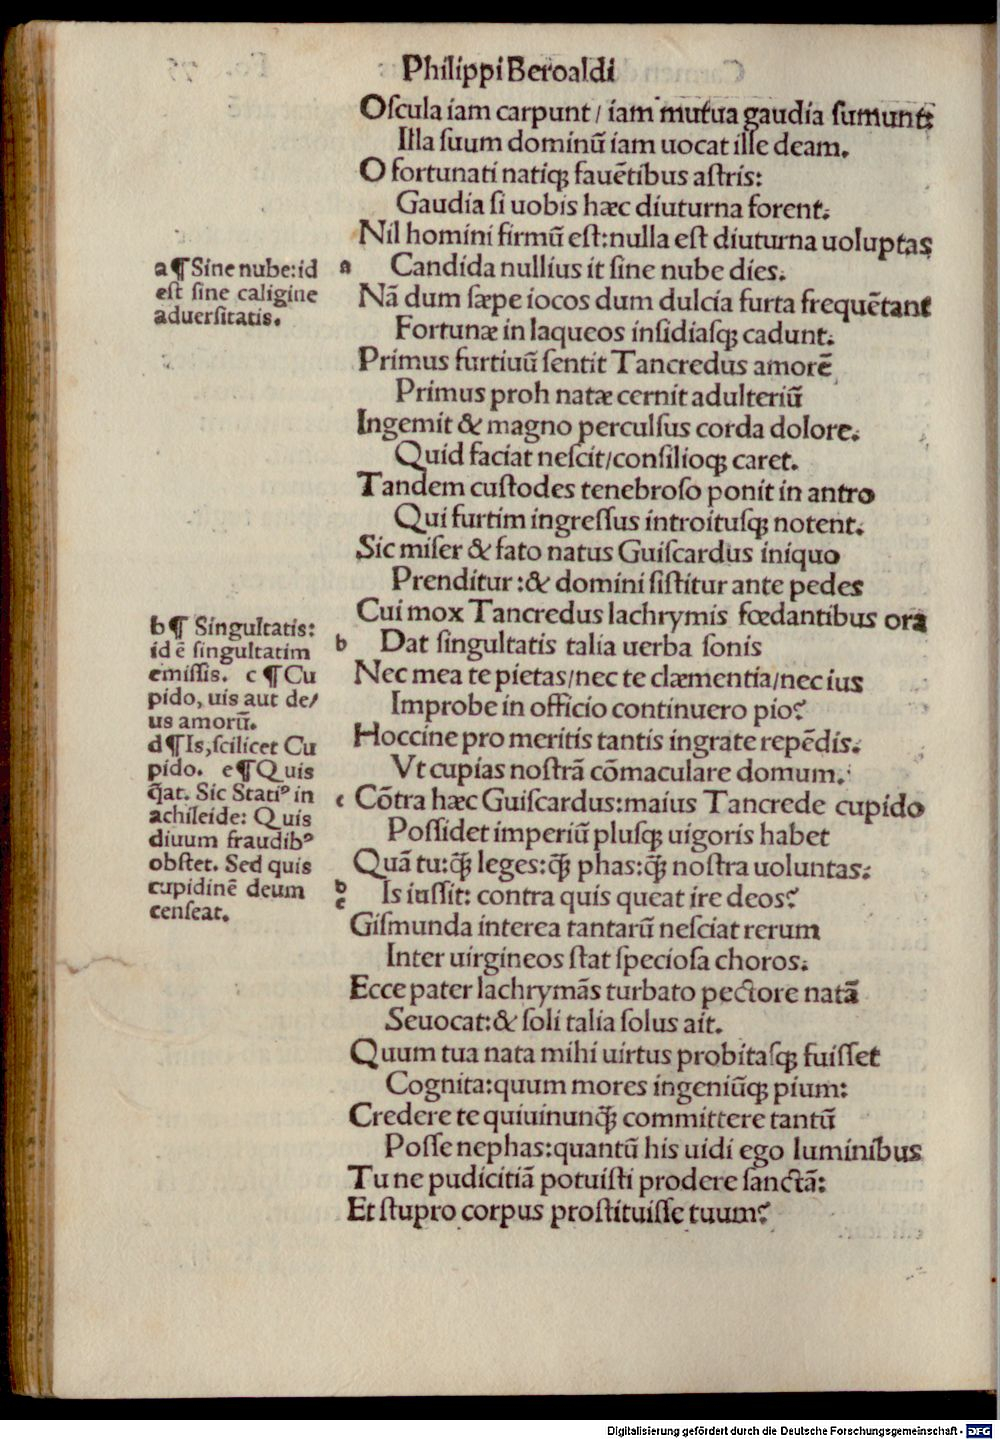 Philippi Beroaldi
Oſcula iam carpunt / iam mutua gaudia ſumunt:
Illa ſuum dominū iam uocat ille deam.
O fortunati natiqȝ fauētibus aſtris:
Gaudia ſi uobis hæc diuturna forent.
Nil homini firmū eſt: nulla eſt diuturna uoluptas
a Candida nullius it ſine nube dies.
Nā dum ſæpe iocos dum dulcia furta frequētant
Fortunæ in laqueos inſidiaſqȝ cadunt.
Primus furtiuū ſentit Tancredus amorē
Primus proh natæ cernit adulteriū
Ingemit & magno perculſus corda dolore.
Quid faciat neſcit/conſilioqȝ caret.
Tandem cuſtodes tenebroſo ponit in antro
Qui furtim ingreſſus introituſqȝ notent.
Sic miſer & fato natus Guiſcardus iniquo
Prenditur: & domini ſiſtitur ante pedes
Cui mox Tancredus lachrymis fœdantibus ora
b Dat ſingultatis talia uerba ſonis
Nec mea te pietas/nec te clæmentia/nec ius
Improbe in officio continuero pio?
Hoccine pro meritis tantis ingrate repēdis.
Vt cupias noſtrā cōmaculare domum.
c Cōtra hæc Guiſcardus: maius Tancrede cupido
Poſſidet imperiū pluſqȝ uigoris habet
Quā tu: q̄ȝ leges: q̄ȝ phas: q̄ȝ noſtra uoluntas.
d e Is iuſſit: contra quis queat ire deos?
Giſmunda interea tantarū neſciat rerum
Inter uirgineos ſtat ſpecioſa choros.
Ecce pater lachrymās turbato pectore natā
Seuocat: & ſoli talia ſolus ait.
Quum tua nata mihi uirtus probitaſqȝ fuiſſet
Cognita: quum mores ingeniūqȝ pium:
Credere te quiuinunq̄ȝ committere tantū
Poſſe nephas: quantū his uidi ego luminibus
Tu ne pudicitiā potuiſti prodere ſanctā:
Et ſtupro corpus proſtituiſſe tuum?
a ¶ Sine nube: id
eſt ſine caligine
aduerſitatis.
b ¶ Singultatis:
id ē ſingultatim
emiſſis. c ¶ Cu
pido, uis aut de/
us amorū.
d ¶ Is, ſcilicet Cu
pido. e ¶ Quis
q̄at. Sic Statiꝰ in
achileide: Quis
diuum fraudibꝰ
obſtet. Sed quis
cupidinē deum
cenſeat.
Digitalisierung gefördert durch die Deutsche Forschungsgemeinschaft - DFG